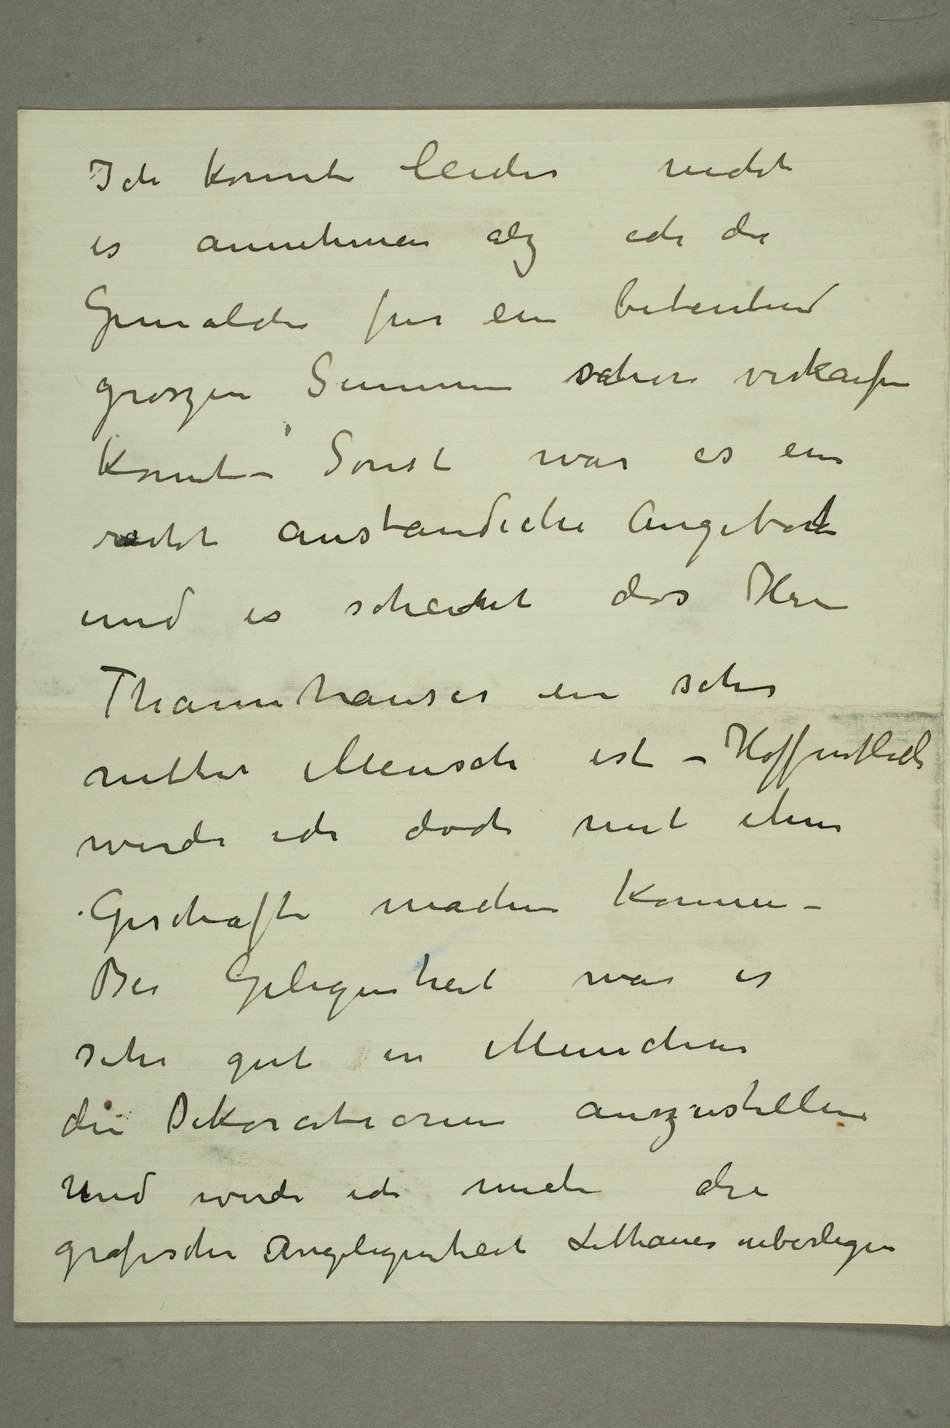 Ich konnte leider nicht
es annehmen als ich die
Gemälde fur ein betentend
groszen Summen schon verkaufen
konnte – Sonst war es ein
recht anstandiche Angebot
und es scheint das Herr
Thannhauser ein sehr
netter Mensch ist – Hoffentlich
werde ich doch mit ihm
Geschäfte machen können –
Bei Gelegenheit war es
sehr gut in München
die Dekorationen auszustellen
Und werde ich mich die
grafische Angelegenheit Littauer uberlegen